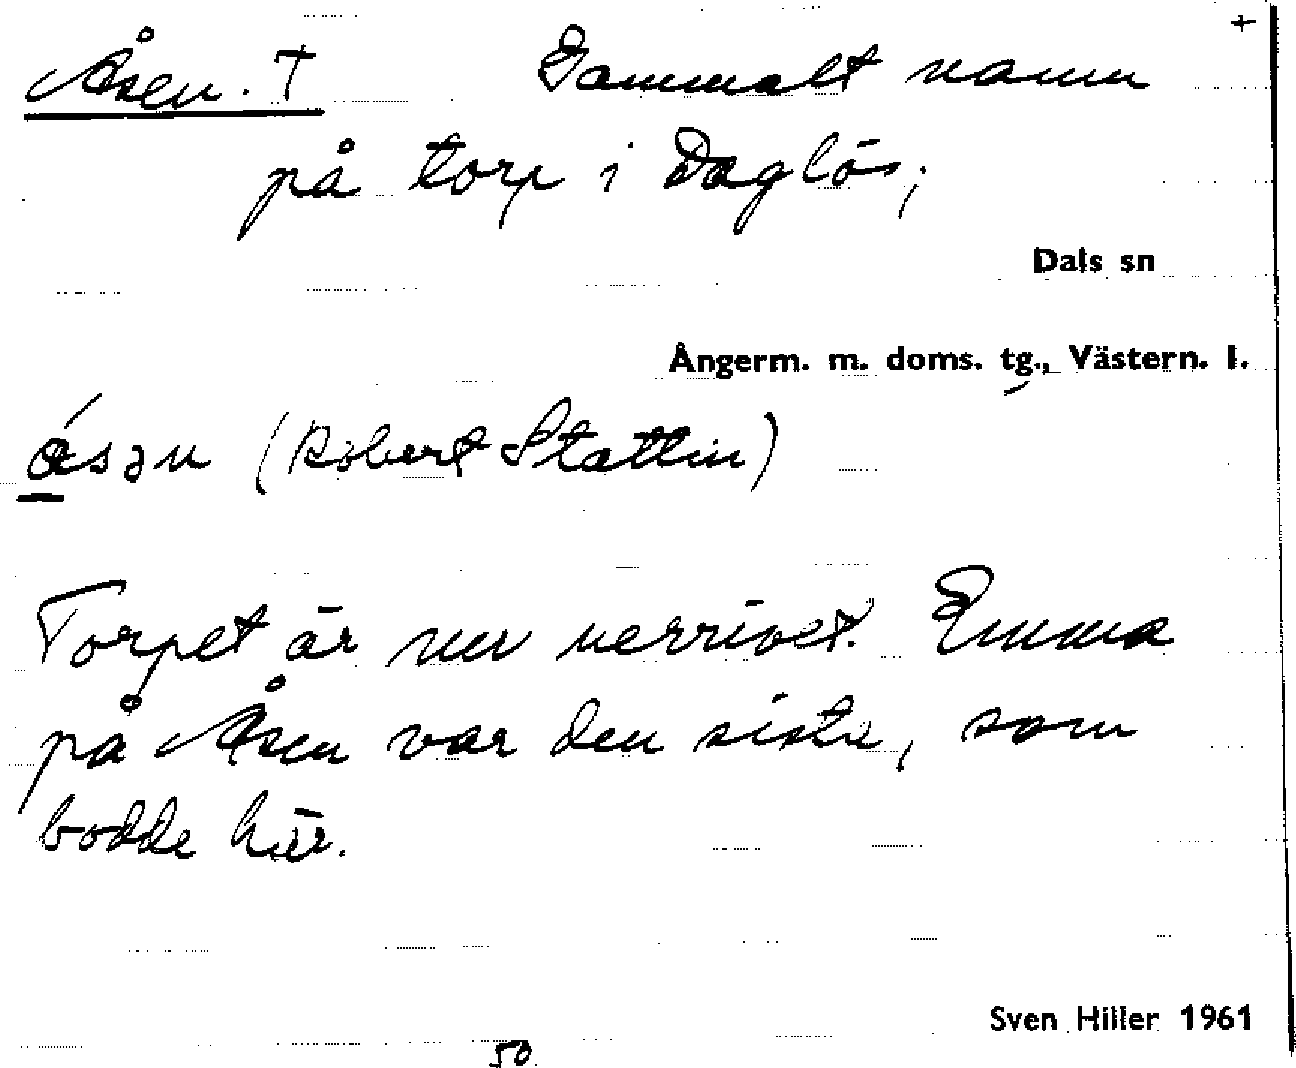 +
Åsen. † Gammalt namn
på torp i Daglös;
Dals sn
Ångerm. m. doms. tg., Västern. l.
ásən (Robert Stattin)
Torpet är nu nerrivet. Emma
på Åsen var den sista, som
bodde här.
Sven Hiller 1961
50